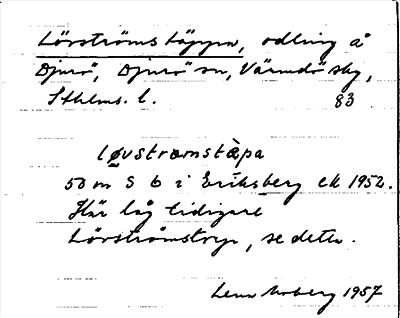 Lövströmstäppan, odling å
Djurö, Djurö sn, Värmdö skg,
Sthlms. l. 83
løvstrømstæpa
50 m S 6 i Eriksberg ek 1952.
Här låg tidigare
Lövströmstorp, se detta.
Lena Moberg 1957